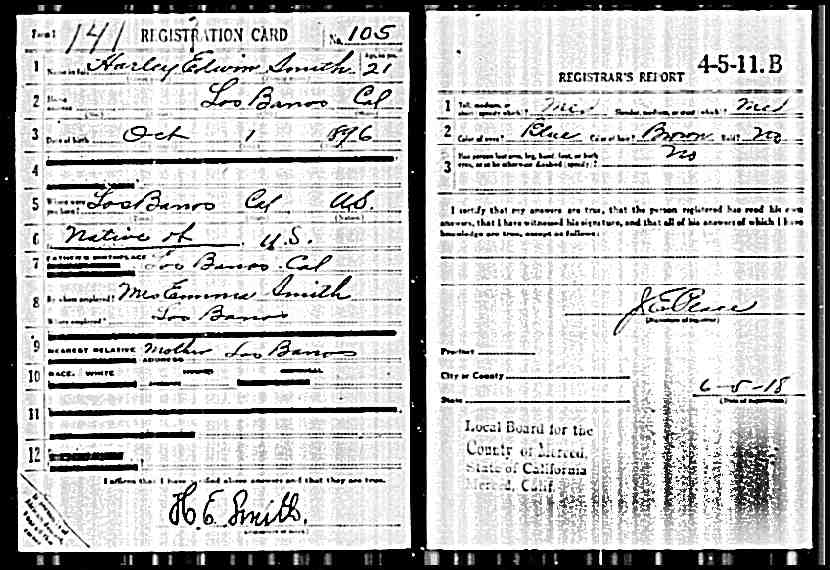 Form 1 141 REGISTRATION CARD No. 105
1 Name in full Harley Edwin Smith Age, in yrs. 21
2 Home address Los Banos Cal
3 Date of birth Oct 1 1896
4
5 Where were you born? Los Banos Cal U.S.
6 Native of U.S.
7 FATHER'S BIRTHPLACE Los Banos Cal
8 By whom employed? Mrs Emma Smith
Where employed? Los Banos
9 NEAREST RELATIVE Mother Los Banos
ADDRESS
10 RACE. WHITE
11
12
I affirm that I have verified above answers and that they are true.
H E Smith.
4-5-11. B
REGISTRAR'S REPORT
1 Tall, medium, or short (specify which)? Med Slender, medium, or stout (which)? Med
2 Color of eyes? Blue Color of hair? Brown Bald? No
3 Has person lost arm, leg, hand, foot, or both eyes, or is he otherwise disabled (specify)? No
I certify that my answers are true, that the person registered has read his own
answers, that I have witnessed his signature, and that all of his answers of which I have
knowledge are true, except as follows:
(Signature of registrar)
Precinct
City or County
State
6-5-18
(Date of registration)
Local Board for the
County of Merced,
State of California
Merced, Calif.